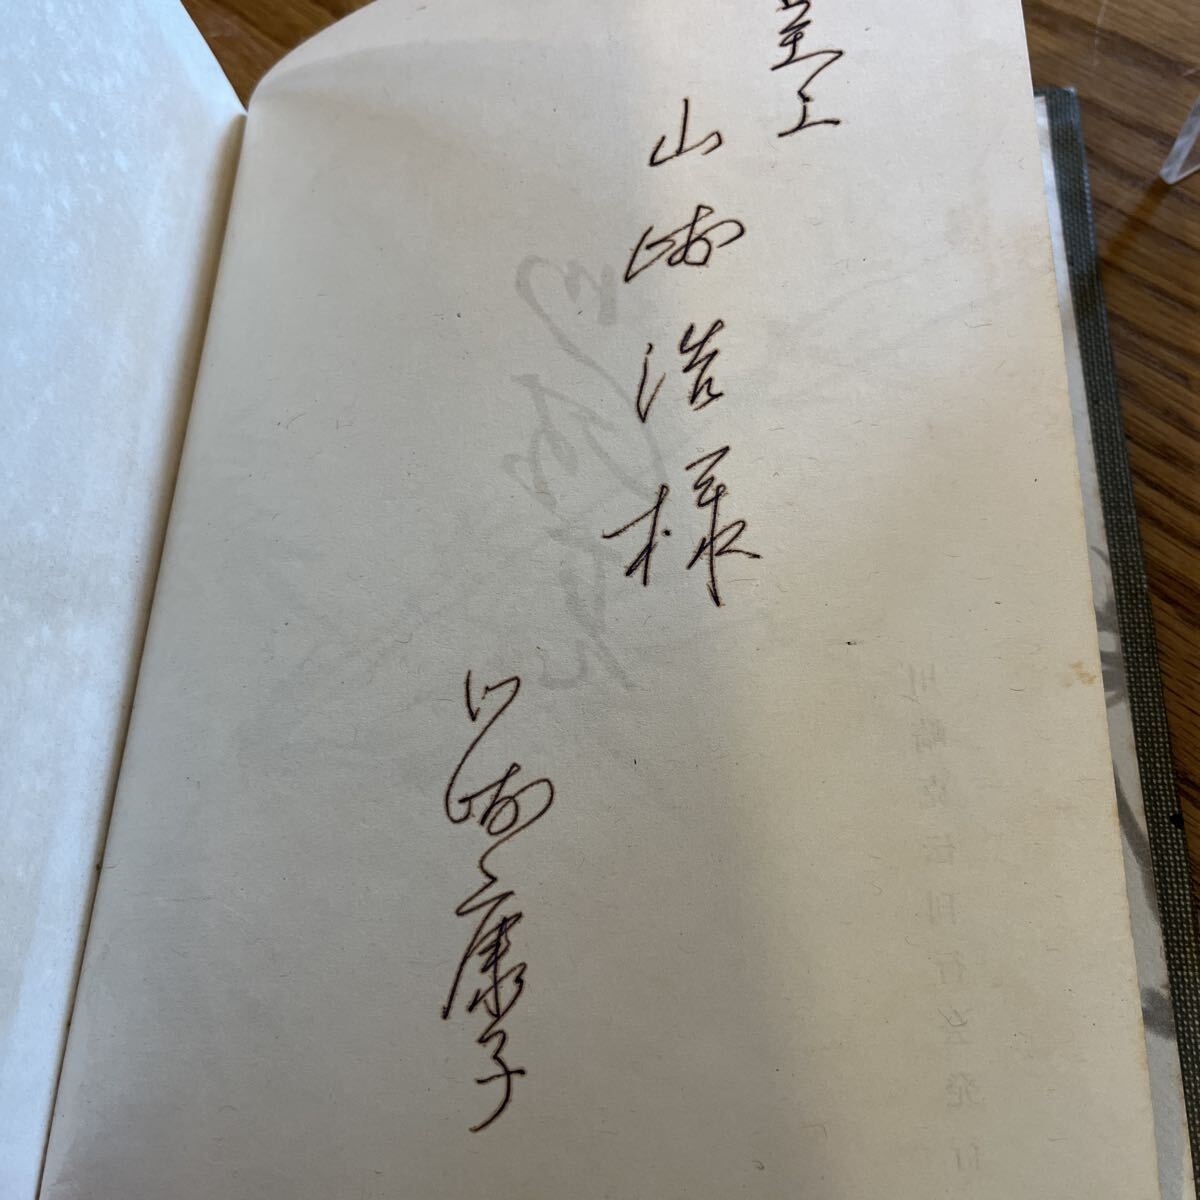 呈上
山崎浩様
山崎康子